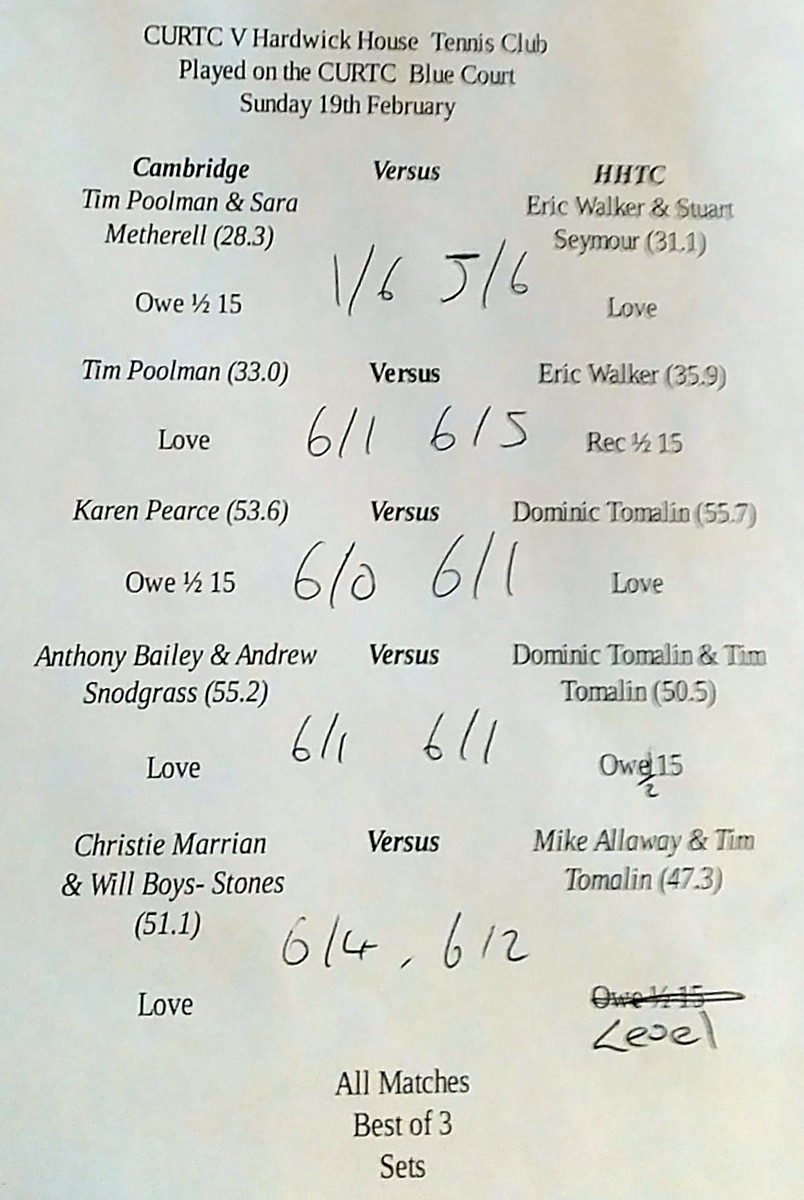 CURTC V Hardwick House Tennis Club
Played on the CURTC Blue Court
Sunday 19th February
Cambridge Versus HHTC
Tim Poolman & Sara Eric Walker & Stuart
Metherell (28.3) Seymour (31.1)
1/6 5/6
Owe ½ 15 Love
Tim Poolman (33.0) Versus Eric Walker (35.9)
Love 6/1 6/5 Rec ½ 15
Karen Pearce (53.6) Versus Dominic Tomalin (55.7)
Owe ½ 15 6/0 6/1 Love
Anthony Bailey & Andrew Versus Dominic Tomalin & Tim
Snodgrass (55.2) Tomalin (50.5)
6/1 6/1
Love Owe ½ 15
Christie Marrian Versus Mike Allaway & Tim
& Will Boys- Stones Tomalin (47.3)
(51.1)
6/4, 6/2
Love Owe ½ 15
Level
All Matches
Best of 3
Sets